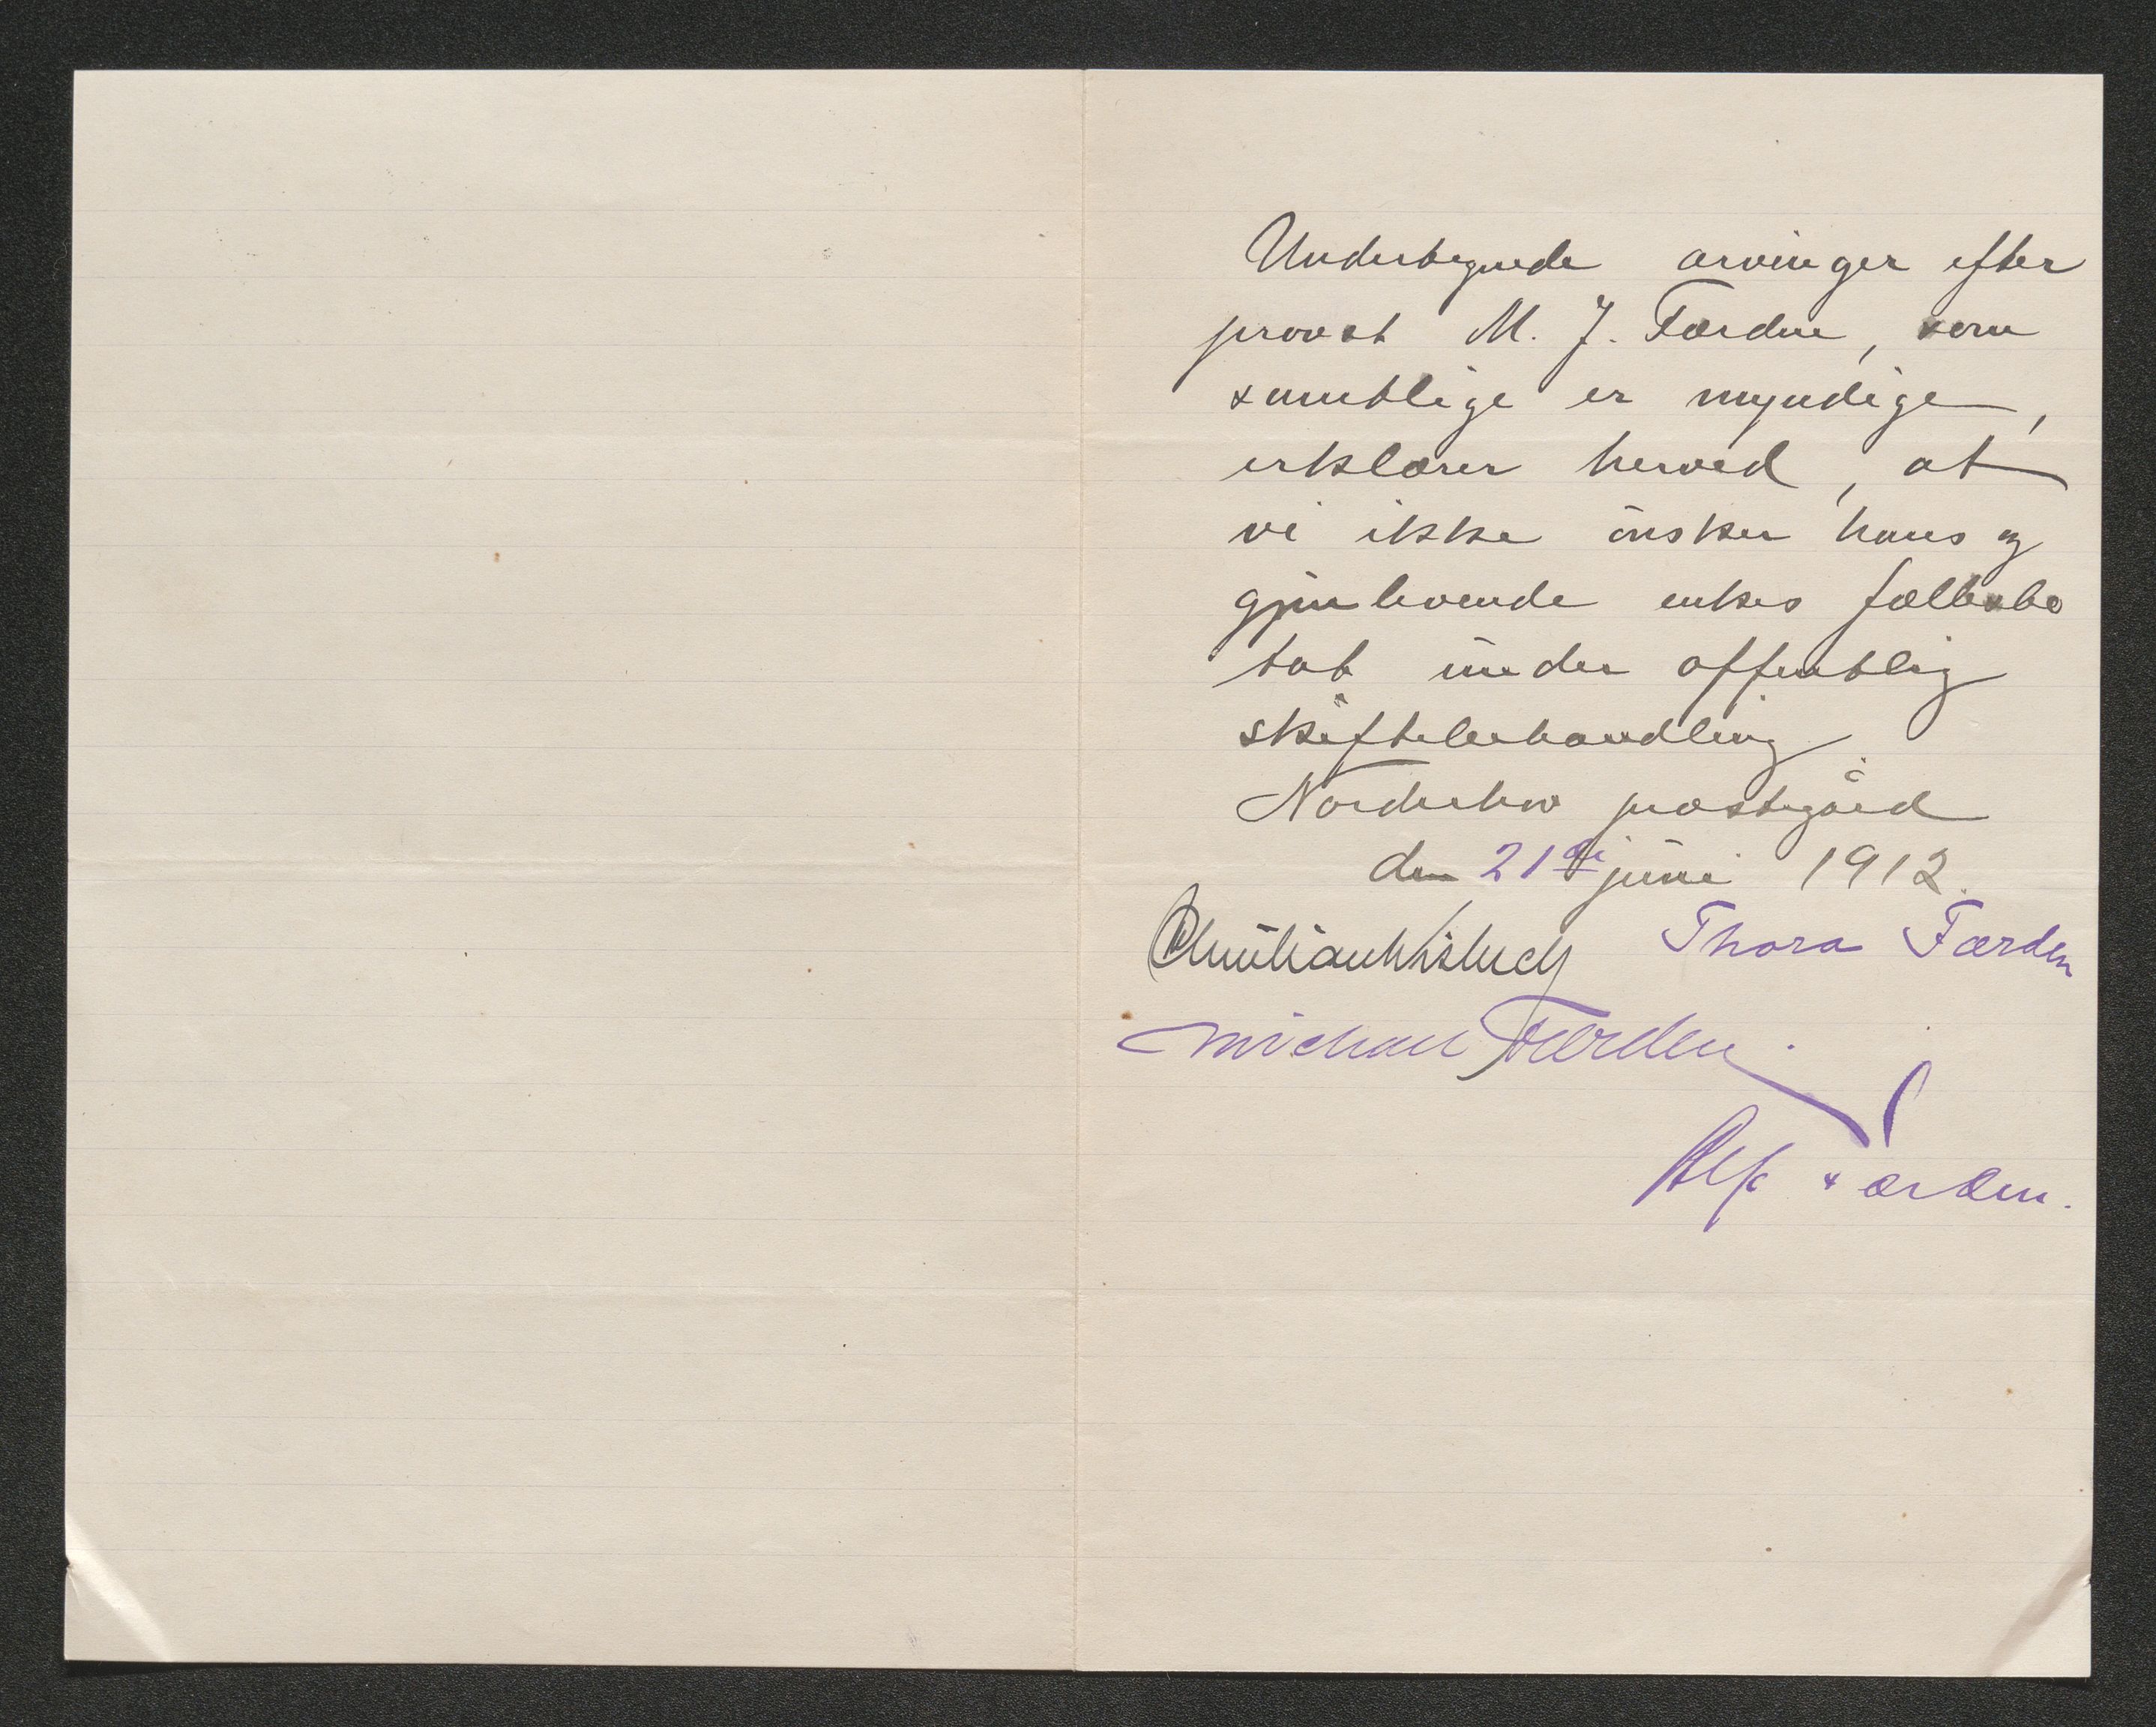 Undertegnede arvinger efter
provst M. J. Færden, som
samtlige er myndige,
erklærer herved, at
vi ikke ønsker hans og
gjenlevende enkes fællesbo
tat under offentlig
skiftebehandling.
Norderhov prestegård
den 21de juni 1912.
Thora Færden
Michael Færden.
Alf Færden.